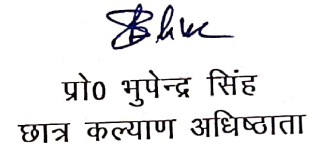 प्रो0 भुपेन्द्र सिंह
छात्र कल्याण अधिष्ठाता